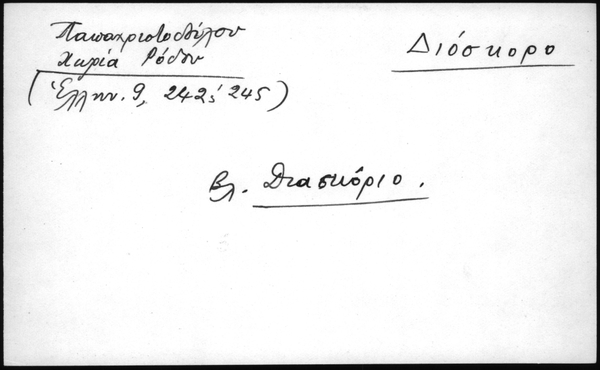 Παπαχριστοδούλου
Χωριά Ρόδου
(Ἑλλην. 9, 242, 245)
Διόσκορο
βλ. Διασκόριο.